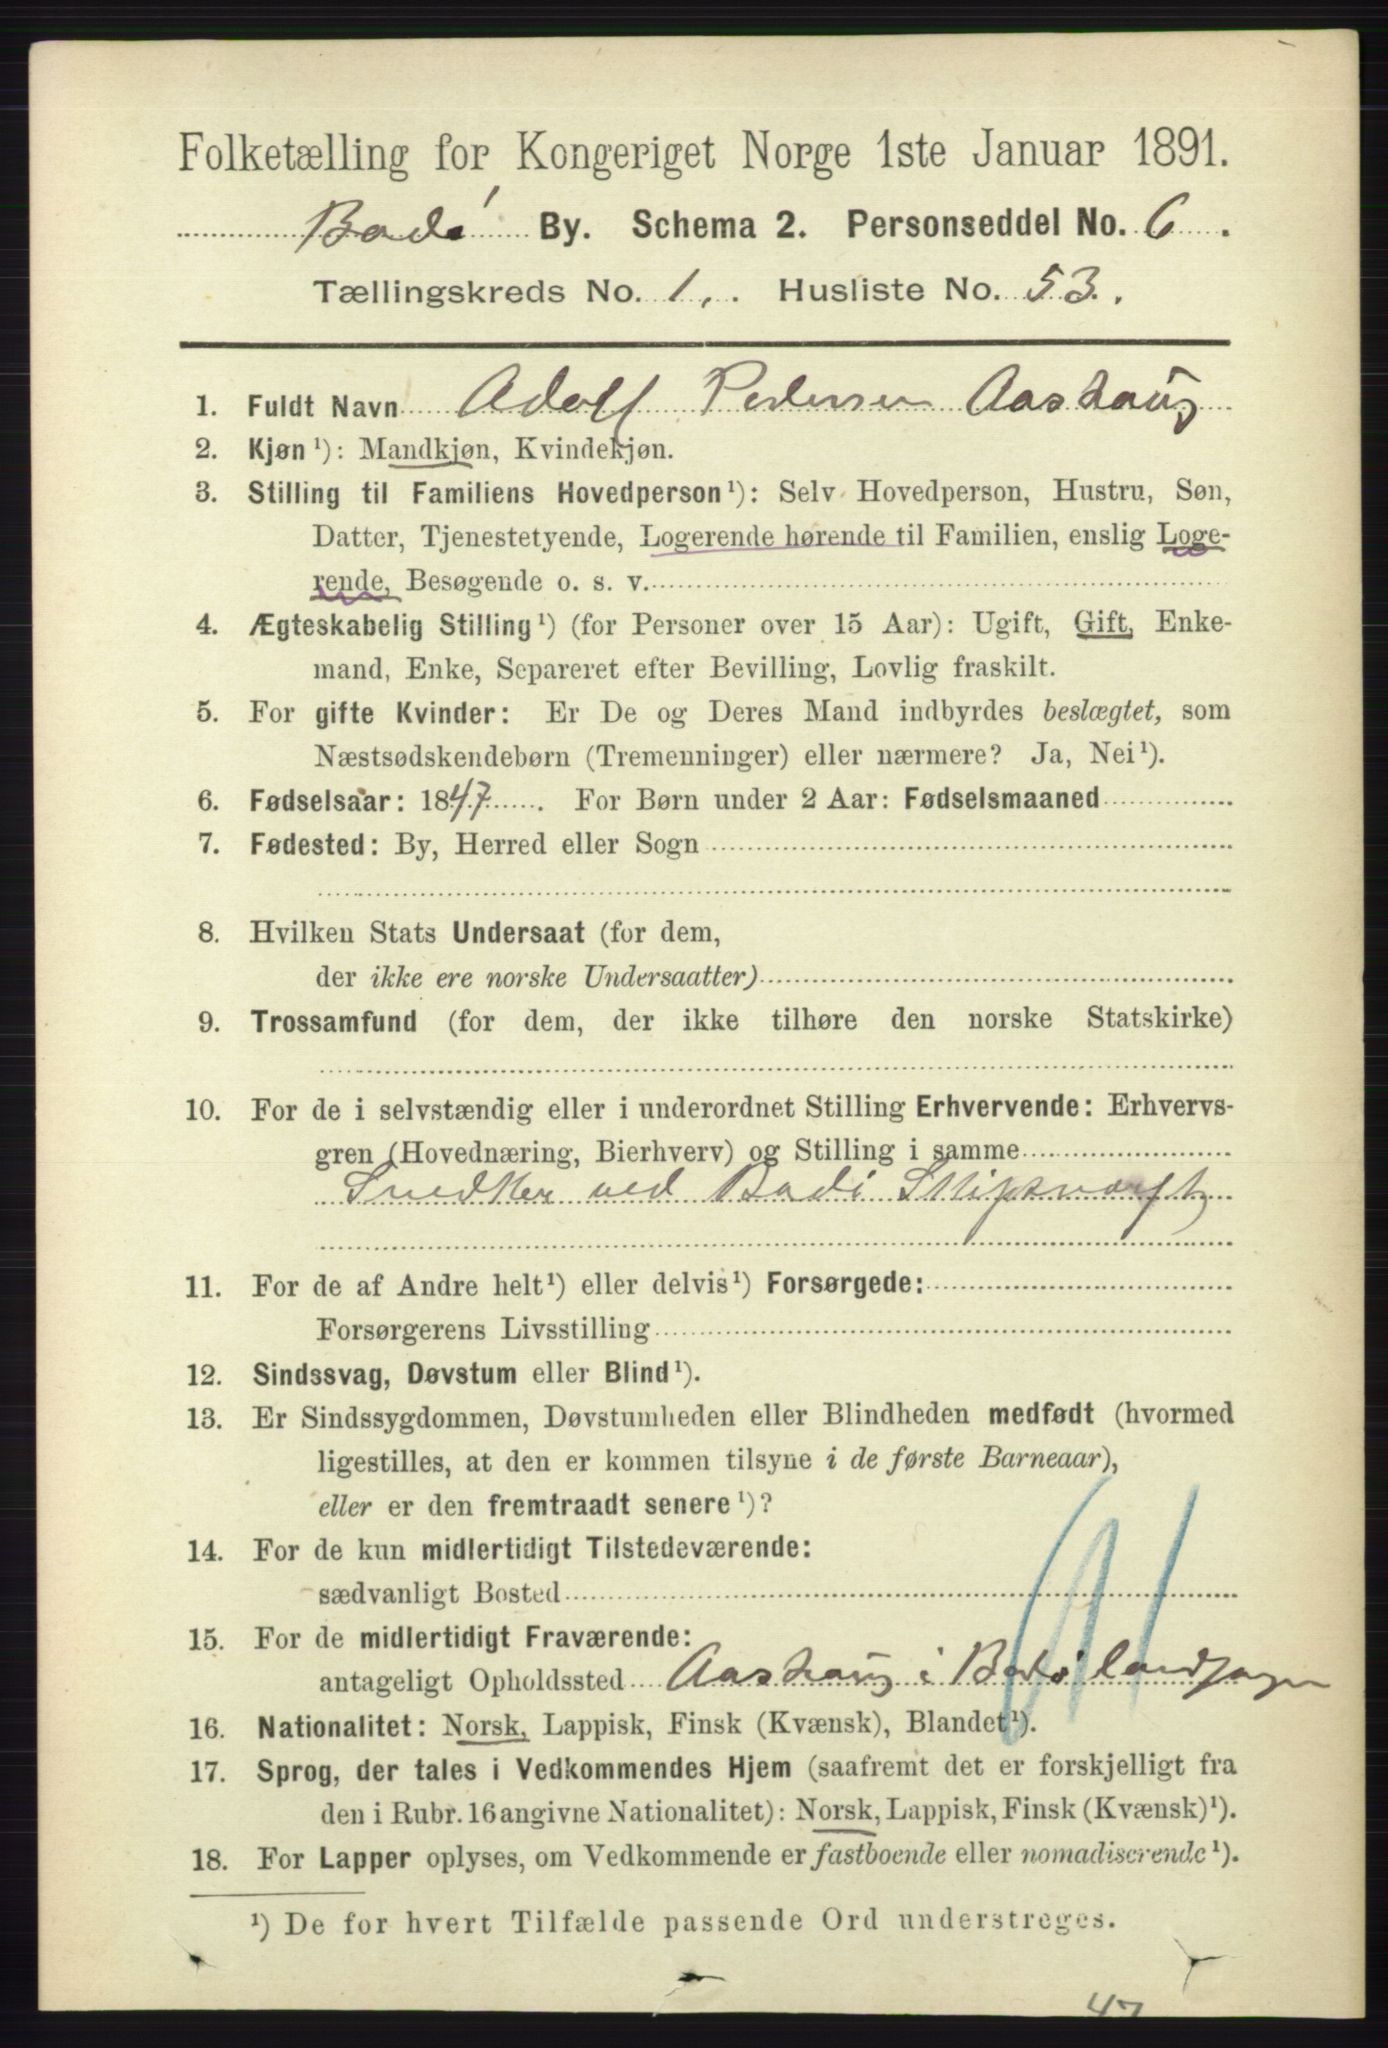 Folketælling for Kongeriget Norge 1ste Januar 1891.
Bodø By. Schema 2. Personseddel No. 6.
Tællingskreds No. 1. Husliste No. 53.
1. Fuldt Navn Adolf Pedersen Aashaug
2. Kjøn¹): Mandkjøn, Kvindekjøn.
3. Stilling til Familiens Hovedperson¹): Selv Hovedperson, Hustru, Søn,
Datter, Tjenestetyende, Logerende hørende til Familien, enslig Loge-
rende, Besøgende o. s. v.
4. Ægteskabelig Stilling¹) (for Personer over 15 Aar): Ugift, Gift, Enke-
mand, Enke, Separeret efter Bevilling, Lovlig fraskilt.
5. For gifte Kvinder: Er De og Deres Mand indbyrdes beslægtet, som
Næstsødskendebørn (Tremenninger) eller nærmere? Ja, Nei¹).
6. Fødselsaar: 1847. For Børn under 2 Aar: Fødselsmaaned
7. Fødested: By, Herred eller Sogn
8. Hvilken Stats Undersaat (for dem,
der ikke ere norske Undersaatter)
9. Trossamfund (for dem, der ikke tilhøre den norske Statskirke)
10. For de i selvstændig eller i underordnet Stilling Erhvervende: Erhvervs-
gren (Hovednæring, Bierhverv) og Stilling i samme
Snedker ved Bodø Skipsværft
11. For de af Andre helt¹) eller delvis¹) Forsørgede:
Forsørgerens Livsstilling
12. Sindssvag, Døvstum eller Blind¹).
13. Er Sindssygdommen, Døvstumheden eller Blindheden medfødt (hvormed
ligestilles, at den er kommen tilsyne i de første Barneaar),
eller er den fremtraadt senere¹)?
14. For de kun midlertidigt Tilstedeværende:
sædvanligt Bosted
15. For de midlertidigt Fraværende:
antageligt Opholdssted Aashaug i Bodø landsogn
16. Nationalitet: Norsk, Lappisk, Finsk (Kvænsk), Blandet¹).
17. Sprog, der tales i Vedkommendes Hjem (saafremt det er forskjelligt fra
den i Rubr. 16 angivne Nationalitet): Norsk, Lappisk, Finsk (Kvænsk)¹).
18. For Lapper oplyses, om Vedkommende er fastboende eller nomadiserende¹).
¹) De for hvert Tilfælde passende Ord understreges.
47